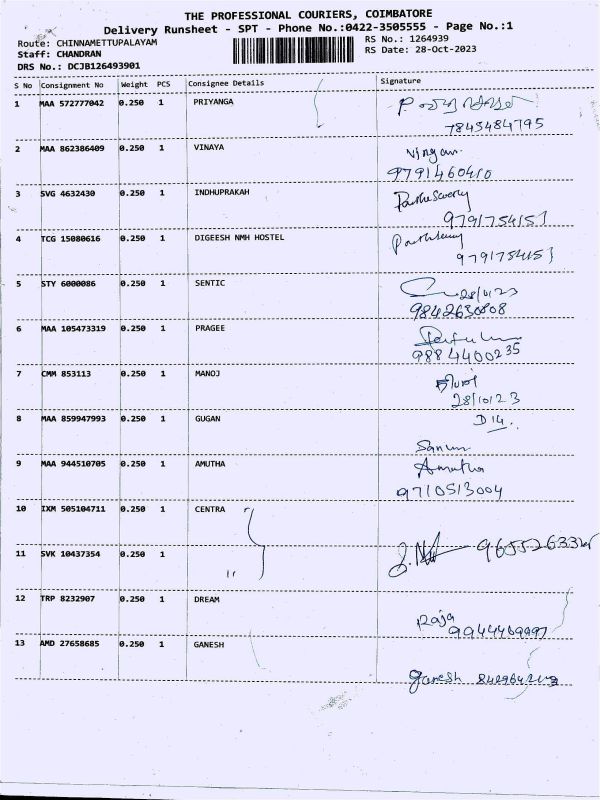 THE PROFESSIONAL COURIERS, COIMBATORE
Delivery Runsheet - SPT - Phone No.:0422-3505555 - Page No.:1
Route: CHINNAMETTUPALAYAM
RS No.: 1264939
Staff: CHANDRAN
RS Date: 28-Oct-2023
DRS No.: DCJB126493901
S No Consignment No Weight PCS Consignee Details Signature
1 MAA 572777042 0.250 1 PRIYANGA
7845484795
2 MAA 862386409 0.250 1 VINAYA
9791460410
3 SVG 4632430 0.250 1 INDHUPRAKAH
9791754153
4 TCG 15080616 0.250 1 DIGEESH NMH HOSTEL
9791754153
5 STY 6000086 0.250 1 SENTIC
28/10/23
9842630808
6 MAA 105473319 0.250 1 PRAGEE
9884400235
7 CMM 853113 0.250 1 MANOJ
28/10/23
8 MAA 859947993 0.250 1 GUGAN
D14.
9 MAA 944510705 0.250 1 AMUTHA
Amutha
9710513004
10 IXM 505104711 0.250 1 CENTRA
11 SVK 10437354 0.250 1 "
12 TRP 8232907 0.250 1 DREAM
Raja
9944469997
13 AMD 27658685 0.250 1 GANESH
ganesh